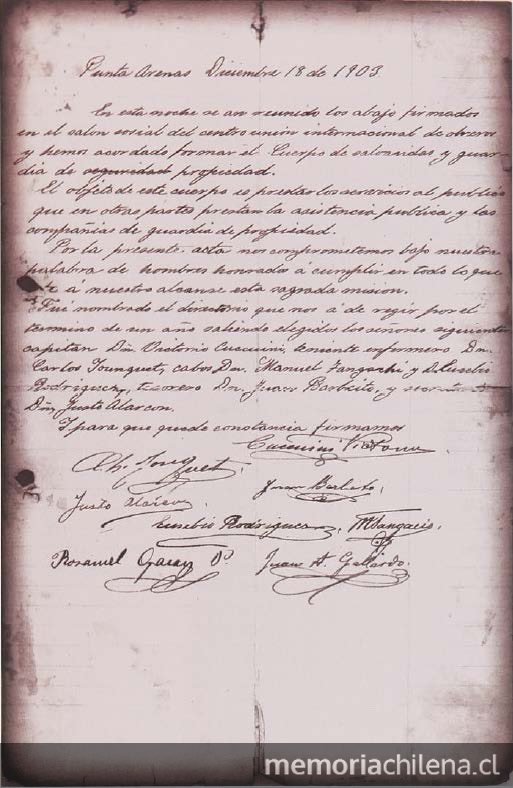 Punta Arenas Diciembre 18 de 1903
En esta noche se an reunido los abajo firmados
en el salon social del centro union internacional de obreros
y hemos acordado formar el Cuerpo de salvavidas y guar-
dia de seguridad propiedad.
El objeto de este cuerpo es prestar los servicios al publico
que en otras partes prestan la asistencia publica y las
compañias de guardia de propiedad.
Por la presente acta nos comprometemos bajo nuestra
palabra de hombres honrados á cumplir en todo lo que
á nuestro alcanse esta sagrada mision.
Fué nombrado el directorio que nos á de regir por el
termino de un año saliendo elegidos los señores siguiente
capitan Dn. Victorio Cuccuini, teniente enfermero Dn.
Carlos Jounguet, cabos Dn. Manuel Fangachi y D. Eusebio
Rodriguez, tesorero Dn. Juan Barberito, y secretario
Dn. Justo Alarcon.
I para que quede constancia firmamos
Cuccuini Vittorio
Ch. Jouguet
Juan Barberito
Justo Alarcon
Eusebio Rodriguez
Rosamel Garay
Juan A. Gallardo.
memoriachilena.cl